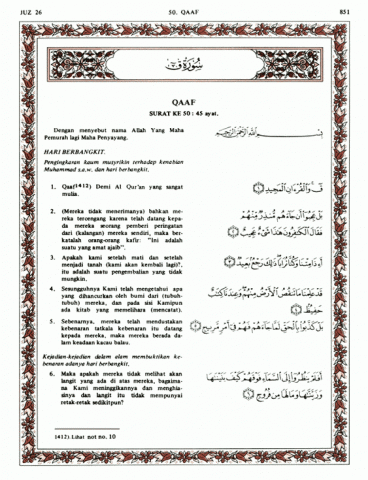 JUZ 26 50. QAAF 851
سورة ق
QAAF
SURAT KE 50 : 45 ayat.
Dengan menyebut nama Allah Yang Maha
Pemurah lagi Maha Penyayang.
بسم الله الرحمن الرحيم
HARI BERBANGKIT.
Pengingkaran kaum musyrikin terhadap kenabian
Muhammad s.a.w. dan hari berbangkit.
1. Qaaf(1412) Demi Al Qur'an yang sangat
mulia.
ق وَالْقُرْءَانِ الْمَجِيدِ
2. (Mereka tidak menerimanya) bahkan me-
reka tercengang karena telah datang kepa-
da mereka seorang pemberi peringatan
dari (kalangan) mereka sendiri, maka ber-
katalah orang-orang kafir: "Ini adalah
suatu yang amat ajaib".
بَلْ عَجِبُوا أَنْ جَاءَهُمْ مُنْذِرٌ مِنْهُمْ
فَقَالَ الْكَافِرُونَ هَذَا شَيْءٌ عَجِيبٌ
3. Apakah kami setelah mati dan setelah
menjadi tanah (kami akan kembali lagi)?,
itu adalah suatu pengembalian yang tidak
mungkin.
أَءِذَا مِتْنَا وَكُنَّا تُرَابًا ذَلِكَ رَجْعٌ بَعِيدٌ
4. Sesungguhnya Kami telah mengetahui apa
yang dihancurkan oleh bumi dari (tubuh-
tubuh) mereka, dan pada sisi Kamipun
ada kitab yang memelihara (mencatat).
قَدْ عَلِمْنَا مَا تَنْقُصُ الْأَرْضُ مِنْهُمْ وَعِنْدَنَا كِتَابٌ
حَفِيظٌ
5. Sebenarnya, mereka telah mendustakan
kebenaran tatkala kebenaran itu datang
kepada mereka, maka mereka berada da-
lam keadaan kacau balau.
بَلْ كَذَّبُوا بِالْحَقِّ لَمَّا جَاءَهُمْ فَهُمْ فِي أَمْرٍ مَرِيجٍ
Kejadian-kejadian dalam alam membuktikan ke-
benaran adanya hari berbangkit.
6. Maka apakah mereka tidak melihat akan
langit yang ada di atas mereka, bagaima-
na Kami meninggikannya dan menghia-
sinya dan langit itu tidak mempunyai
retak-retak sedikitpun?
أَفَلَمْ يَنْظُرُوا إِلَى السَّمَاءِ فَوْقَهُمْ كَيْفَ بَنَيْنَاهَا
وَزَيَّنَّاهَا وَمَا لَهَا مِنْ فُرُوجٍ
1412) Lihat not no. 10